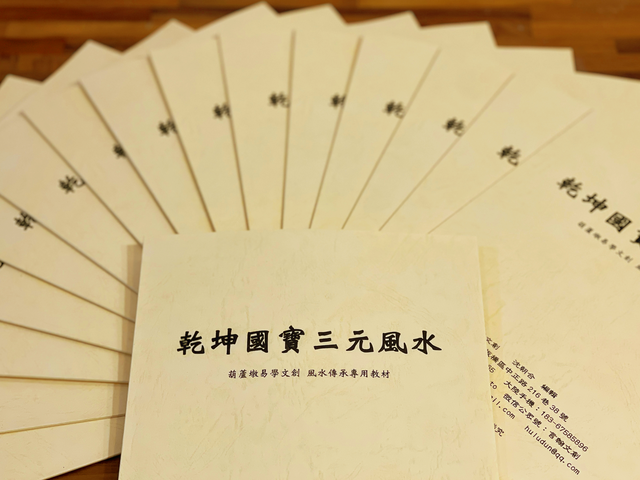 乾坤國寶三元風水
葫蘆墩易學文創 風水傳承專用教材
乾
乾
乾
乾
乾
乾
乾
乾
乾坤國寶
葫蘆墩易學文創
文創 沈朝合 編輯
區中正路216巷38號
大陸手機：183-67585896
微信公眾號：言翰文創
huludun@qq.com